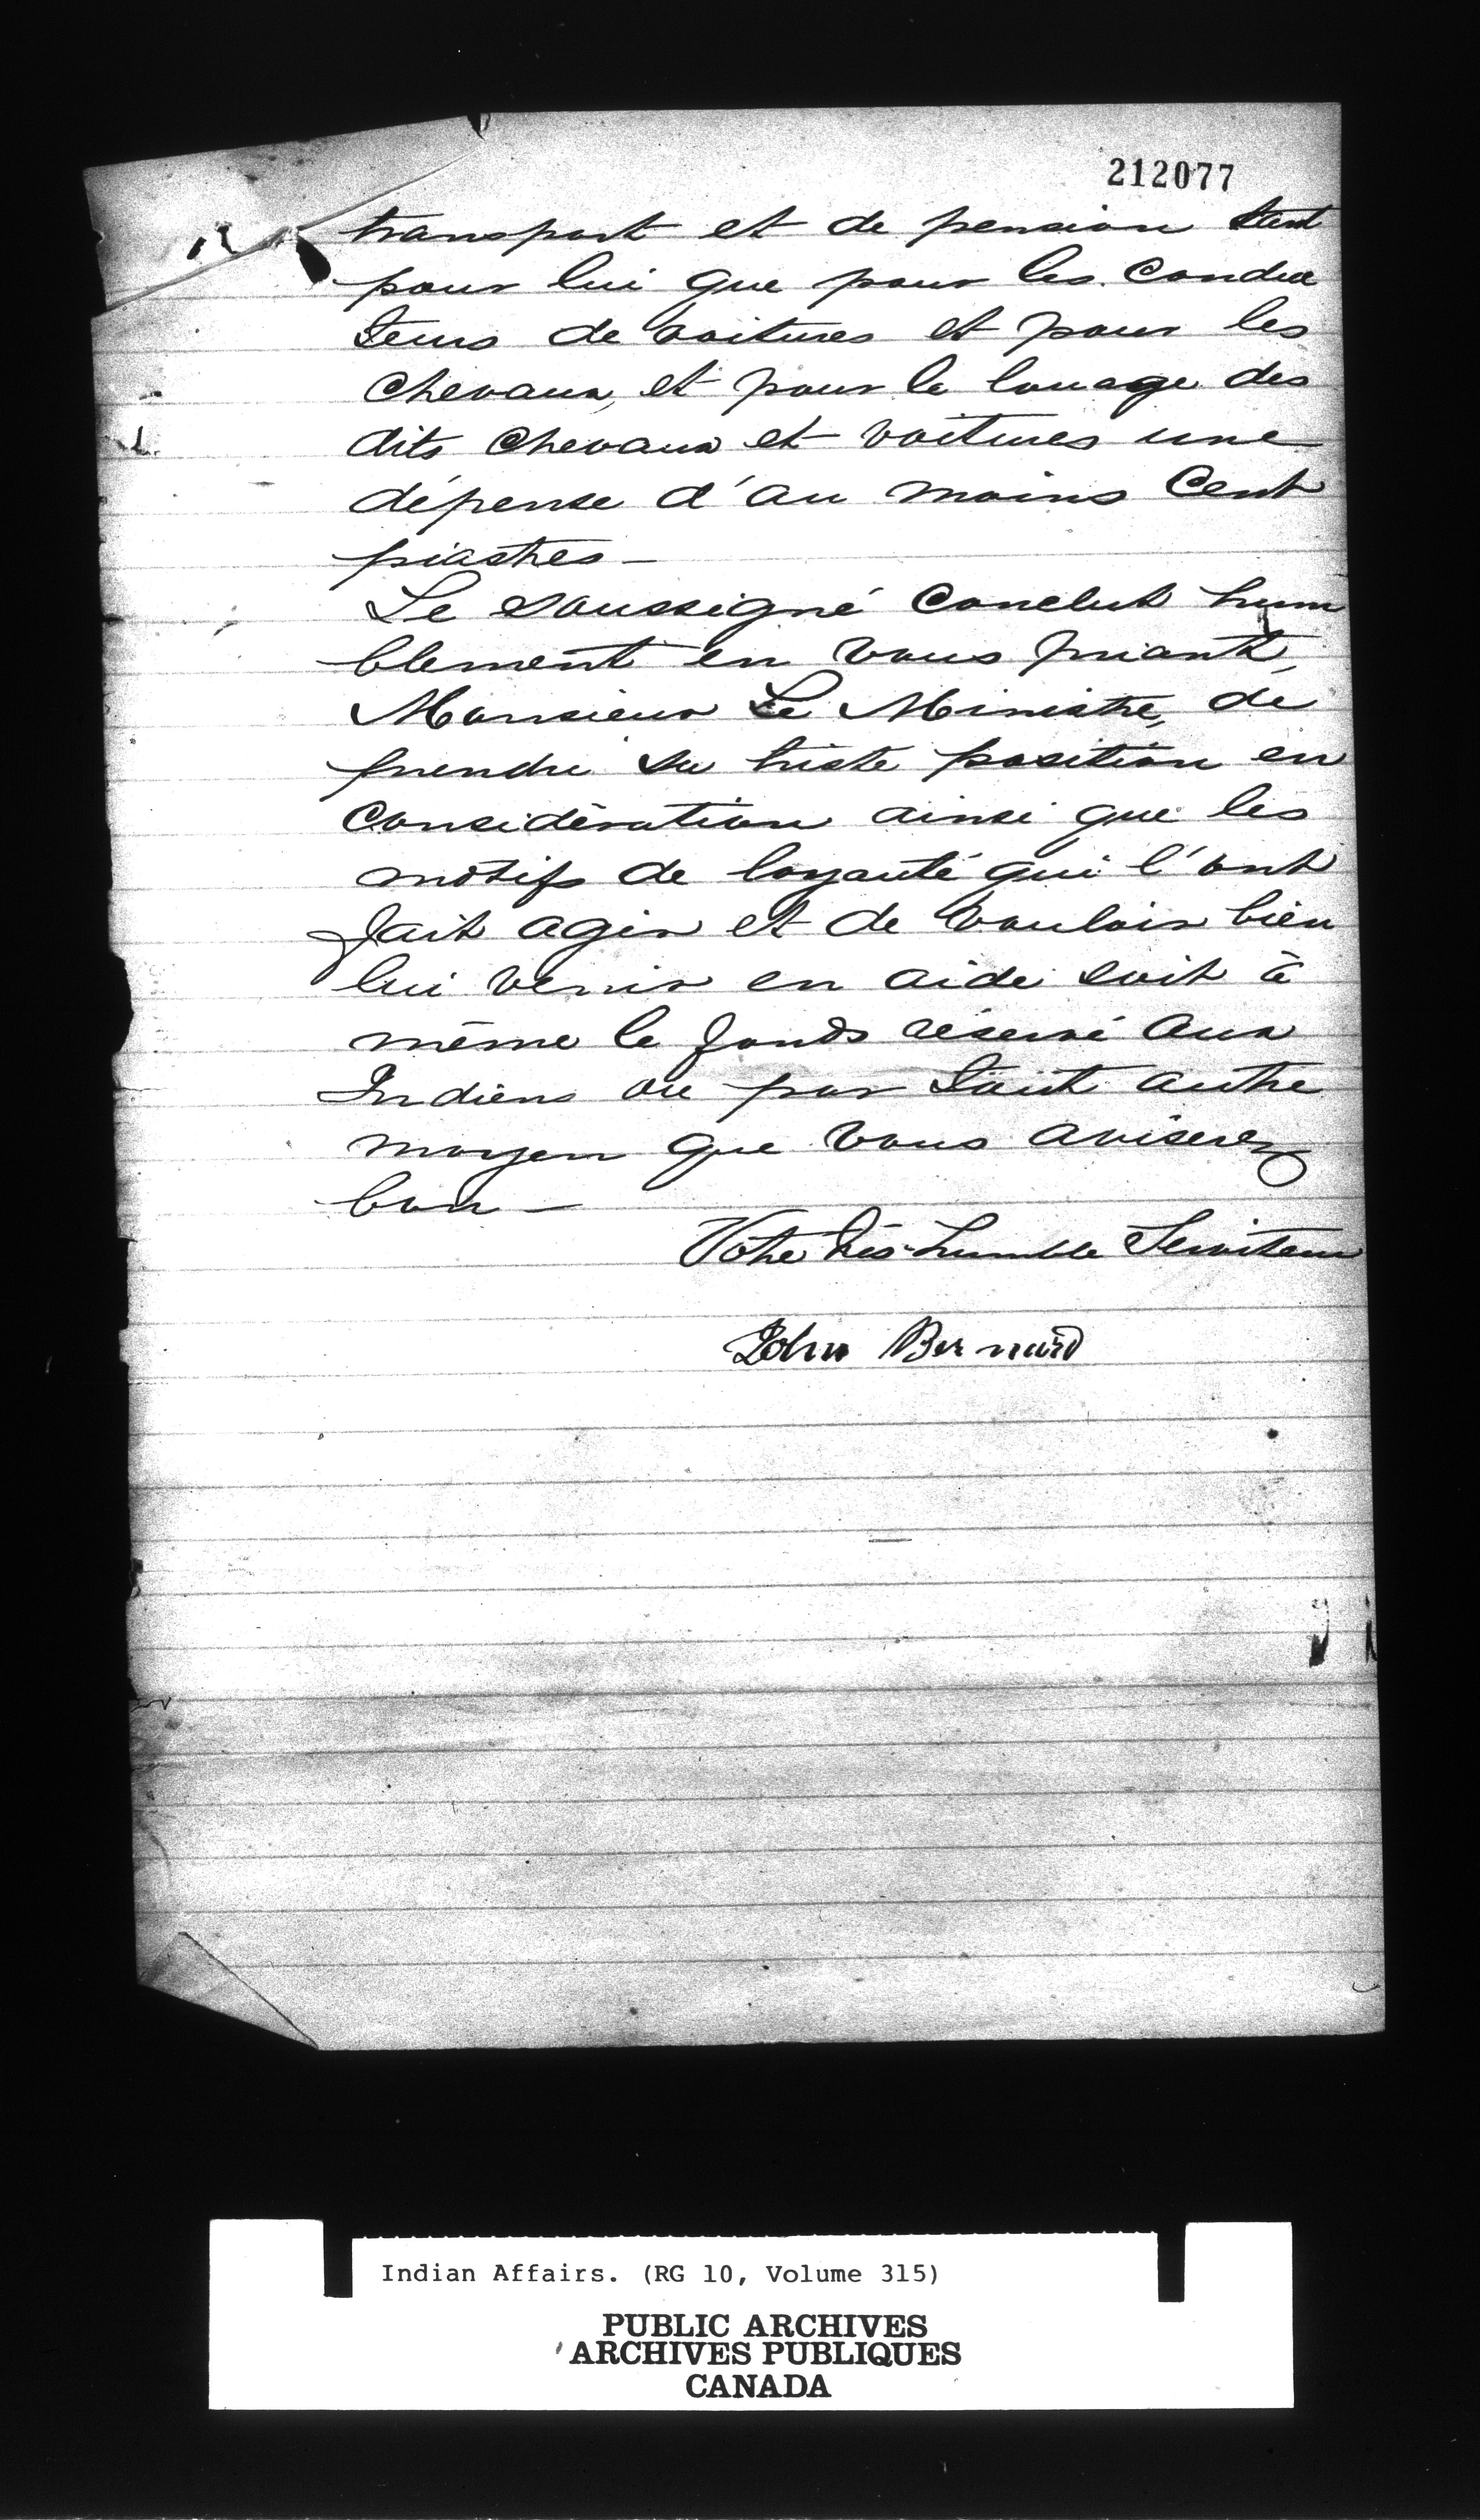 212077
transport et de pension tant
pour lui que pour les conduc
teurs de voitures et pour les
chevaux, et pour le louage des
dits chevaux et voitures une
dépense d'au moins Cent
piastres—
Le soussigné conclut hum
blement en vous priant,
Monsieur Le Ministre, de
prendre sa triste position en
considération ainsi que les
motifs de loyauté qui l'ont
fait agir et de vouloir bien
lui venir en aide soit à
même le fonds réservé aux
Indiens ou par tout autre
moyen que vous aviserez
bon—
Votre très-humble Serviteur
John Bernard
Indian Affairs. (RG 10, Volume 315)
PUBLIC ARCHIVES
ARCHIVES PUBLIQUES
CANADA